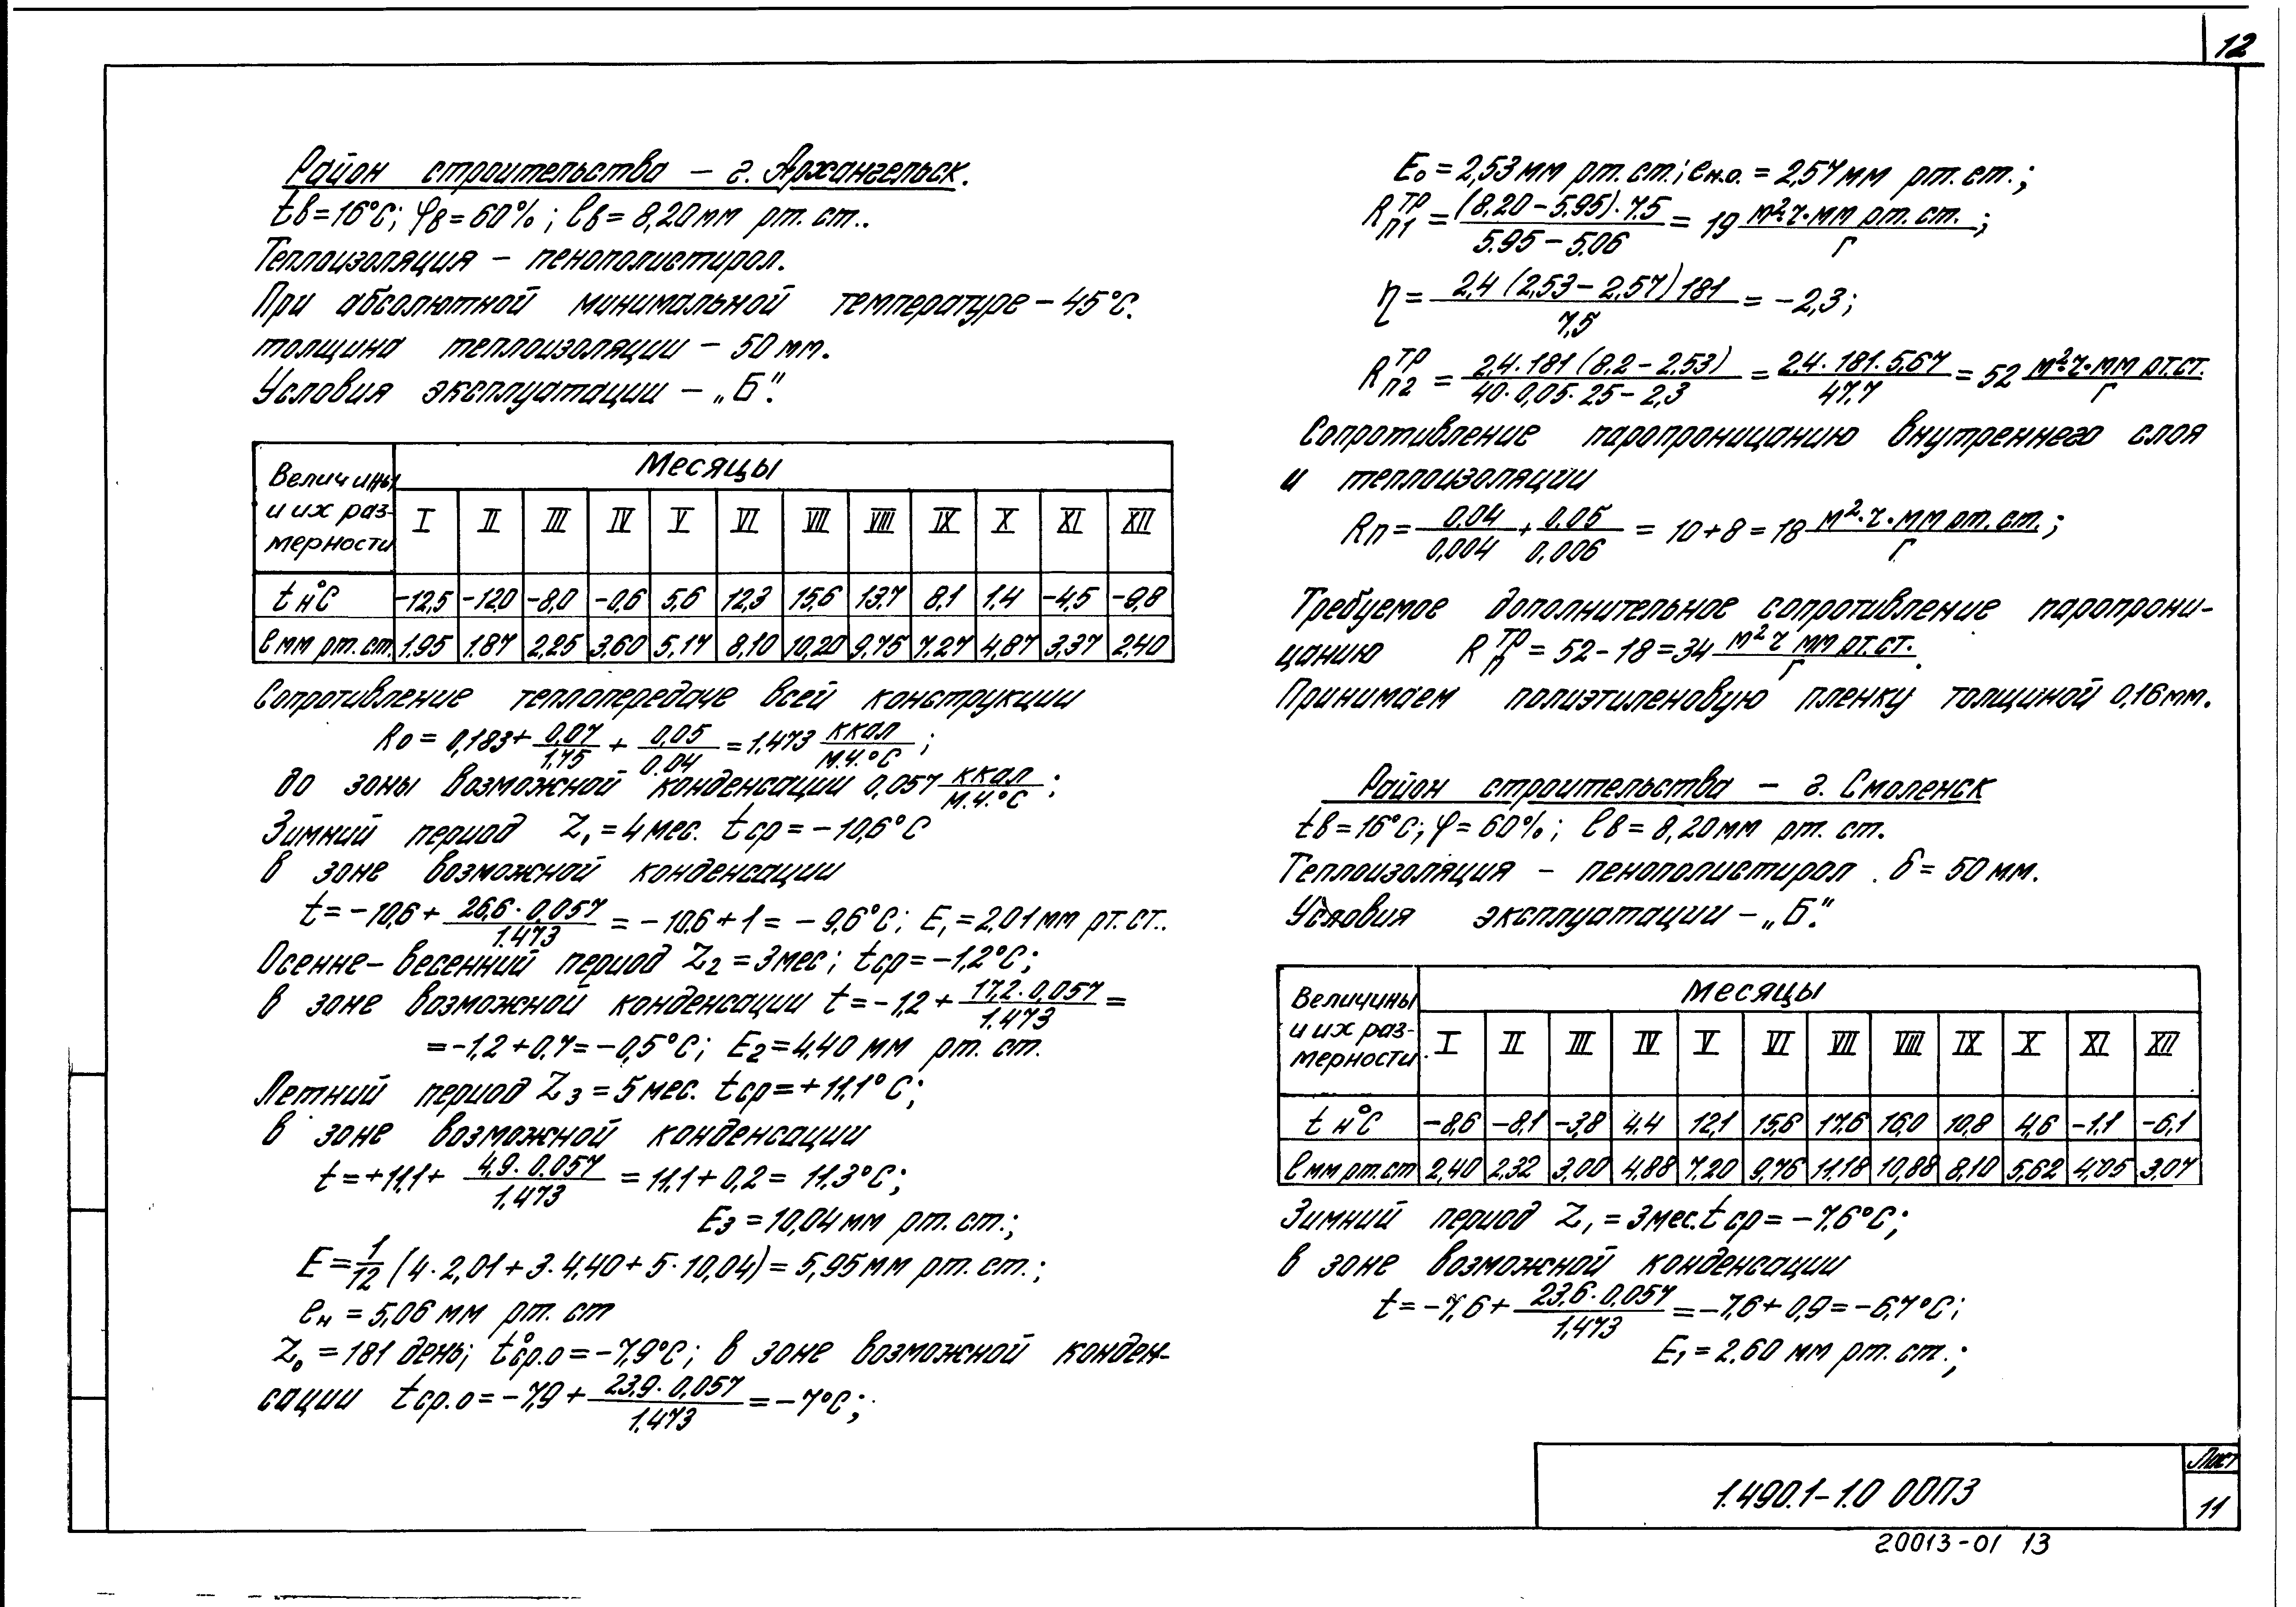 12
Район строительства – г. Архангельск.
tв=16°С; φв=60%; eв=8,20мм рт. ст..
Теплоизоляция – пенополистирол.
При абсолютной минимальной температуре –45°С.
толщина теплоизоляции – 50мм.
Условия эксплуатации – „Б".
Величины и их раз- мерности | Месяцы
I II III IV V VI VII VIII IX X XI XII
t н°С -12,5 -12,0 -8,0 -0,6 5,6 12,3 15,6 13,7 8,1 1,4 -4,5 -9,8
e мм рт. ст. 1.95 1.87 2,25 3,60 5,17 8,10 10,20 9,75 7,27 4,87 3,37 2,40
Сопротивление теплопередаче всей конструкции
R₀ = 0,183 + 0,07/1,75 + 0,05/0.04 = 1.473 ккал/м.ч.°С ;
до зоны возможной конденсации 0,057 ккал/м.ч.°С ;
Зимний период Z₁ = 4 мес. tср = –10,6°С
в зоне возможной конденсации
t = –10,6 + 26,6·0,057/1.473 = –10,6 + 1 = –9,6°С; E₁ = 2,01 мм рт. ст..
Осенне–весенний период Z₂ = 3мес; tср = –1,2°С;
в зоне возможной конденсации t = –1,2 + 17,2·0,057/1.473 =
= –1,2 + 0,7 = –0,5°С; E₂ = 4,40 мм рт. ст.
Летний период Z₃ = 5 мес. tср = +11,1°С;
в зоне возможной конденсации
t = +11,1 + 4,9·0,057/1.473 = 11,1 + 0,2 = 11,3°С;
E₃ = 10,04 мм рт. ст.;
E = 1/12 (4·2,01 + 3·4,40 + 5·10,04) = 5,95 мм рт. ст.;
eн = 5,06 мм рт. ст
Z₀ = 181 день; tн ср.о = –7,9°С; в зоне возможной конден-
сации tср.о = –7,9 + 23,9·0,057/1.473 = –7°С;
E₀ = 2,53 мм рт. ст.; eн.о. = 2,57 мм рт. ст.;
Rп1ᵀᴾ = (8.20 – 5.95)·7.5/5.95 – 5.06 = 19 м²·ч·мм рт. ст./г ;
η = 2,4 (2,53 – 2,57) 181/7,5 = –2,3;
Rп2ᵀᴾ = 2,4·181 (8.2 – 2.53)/40·0,05·25 – 2,3 = 2,4·181·5,67/47,7 = 52 м²·ч·мм рт.ст./г
Сопротивление паропроницанию внутреннего слоя
и теплоизоляции
Rп = 0,04/0,004 + 0,05/0,006 = 10 + 8 = 18 м²·ч·мм рт. ст./г ;
Требуемое дополнительное сопротивление паропрони-
цанию Rпᵀᴾ = 52 – 18 = 34 м² ч мм рт.ст./г .
Принимаем полиэтиленовую пленку толщиной 0,16мм.
Район строительства – г. Смоленск
tв=16°С; φ=60%; eв=8,20мм рт. ст.
Теплоизоляция – пенополистирол. δ = 50мм.
Условия эксплуатации – „Б".
Величины и их раз- мерности | Месяцы
I II III IV V VI VII VIII IX X XI XII
t н°С -8,6 -8,1 -3,8 4.4 12,1 15,6 17,6 16,0 10,8 4,6 -1.1 -6,1
e мм рт. ст 2,40 2,32 3,00 4,88 7,20 9,76 11,18 10,88 8,10 5,62 4,05 3,07
Зимний период Z₁ = 3мес. tср = –7,6°С;
в зоне возможной конденсации
t = –7,6 + 23,6·0,057/1,473 = –7,6 + 0,9 = –6,7°С;
E₁ = 2.60 мм рт. ст.;
1.490.1–1.0 00ПЗ
Лист
11
20013-01 13